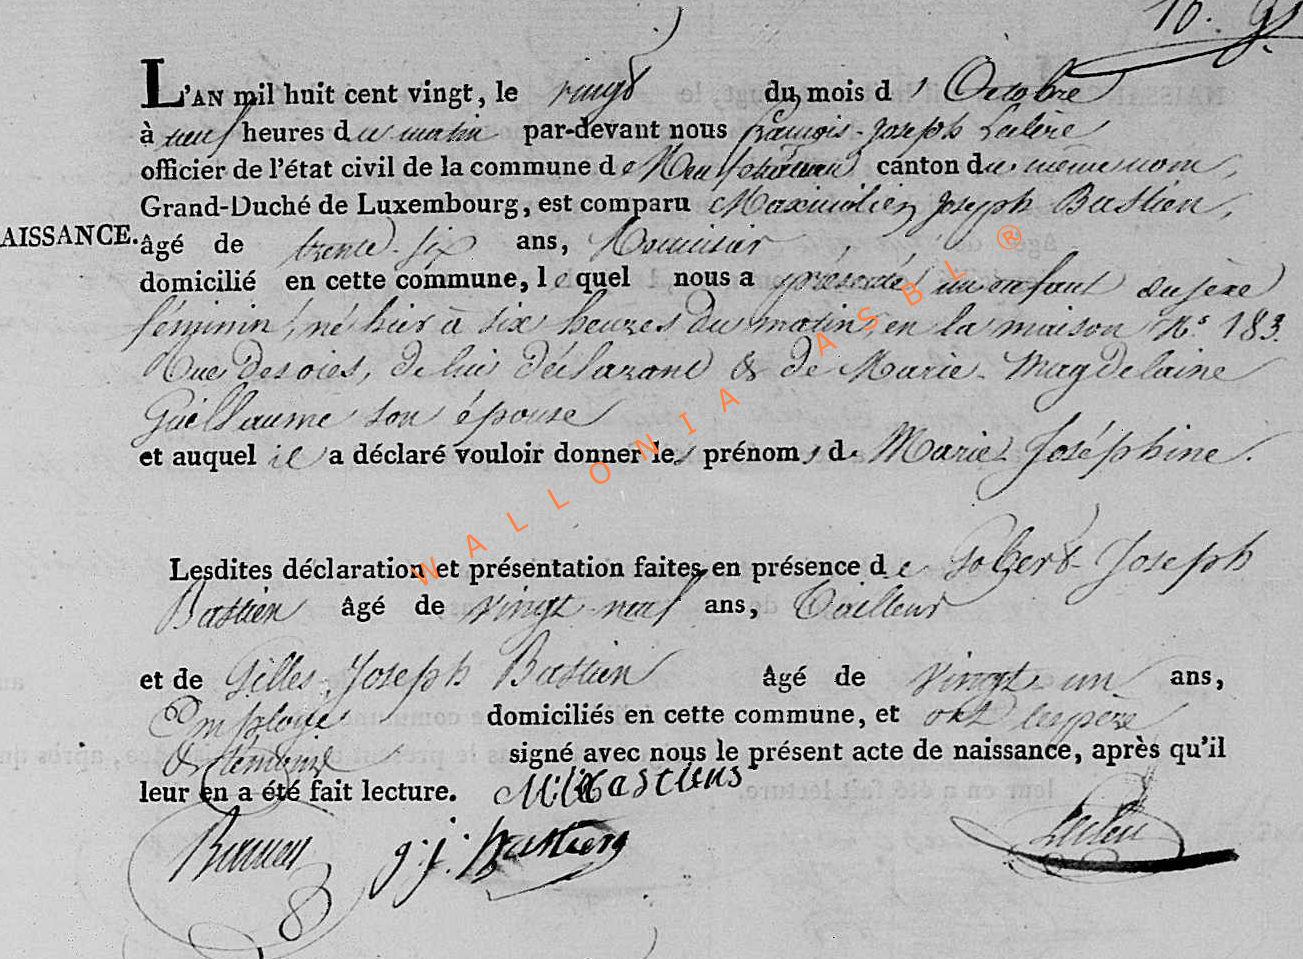 10. 
L'AN mil huit cent vingt, le vingt du mois d' Octobre
à neuf heures du matin par-devant nous françois-Joseph
officier de l'état civil de la commune de Neufchateau canton du même nom,
Grand-Duché de Luxembourg, est comparu Maximilien Joseph Bastien,
AISSANCE. âgé de trente-six ans, 
domicilié en cette commune, lequel nous a présenté un enfant du sexe
féminin, né hier à six heures du matin, en la maison N.° 183.
Rue des oies, de lui déclarant & de Marie-Magdelaine
Guillaume son épouse
et auquel il a déclaré vouloir donner les prénoms de Marie Joséphine.
Lesdites déclaration et présentation faites en présence de Gobert-Joseph
Bastien âgé de vingt-neuf ans, Tailleur
et de Gilles Joseph Bastien âgé de vingt-un ans,
Employé domiciliés en cette commune, et ont les père
& témoins signé avec nous le présent acte de naissance, après qu'il
leur en a été fait lecture. M:J:Bastiens
g.j. Bastiens
WALLONIA ASBL ®